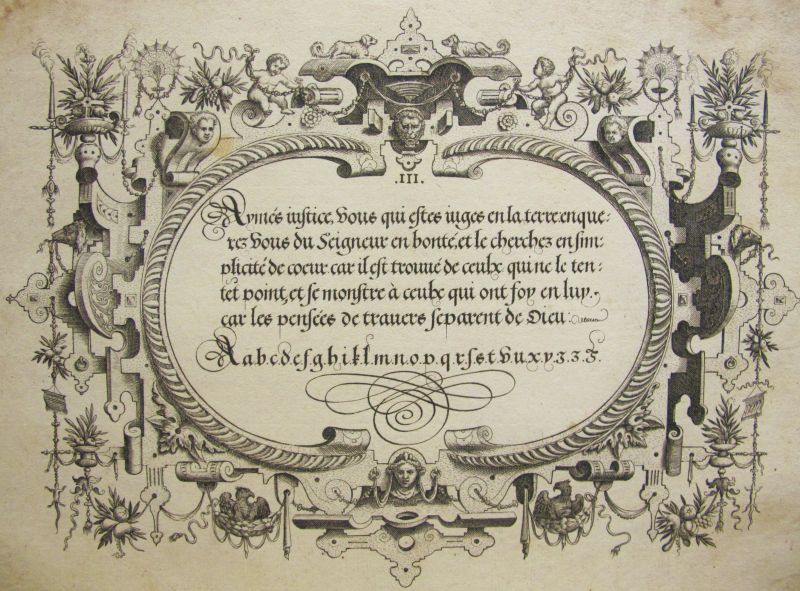 .III.
Aymés iustice, Vous qui estes iuges en la terre.enque=
rez Vous du Seigneur en bonté, et le cherchez en sim=
plicité de coeur car il est trouué de ceulx qui ne le ten=
tet point, et se monstre à ceulx qui ont foy en luy.
car les pensées de trauers separent de Dieu:
A a b c d e f g h i k l m n o p q r s s t V u x y z z